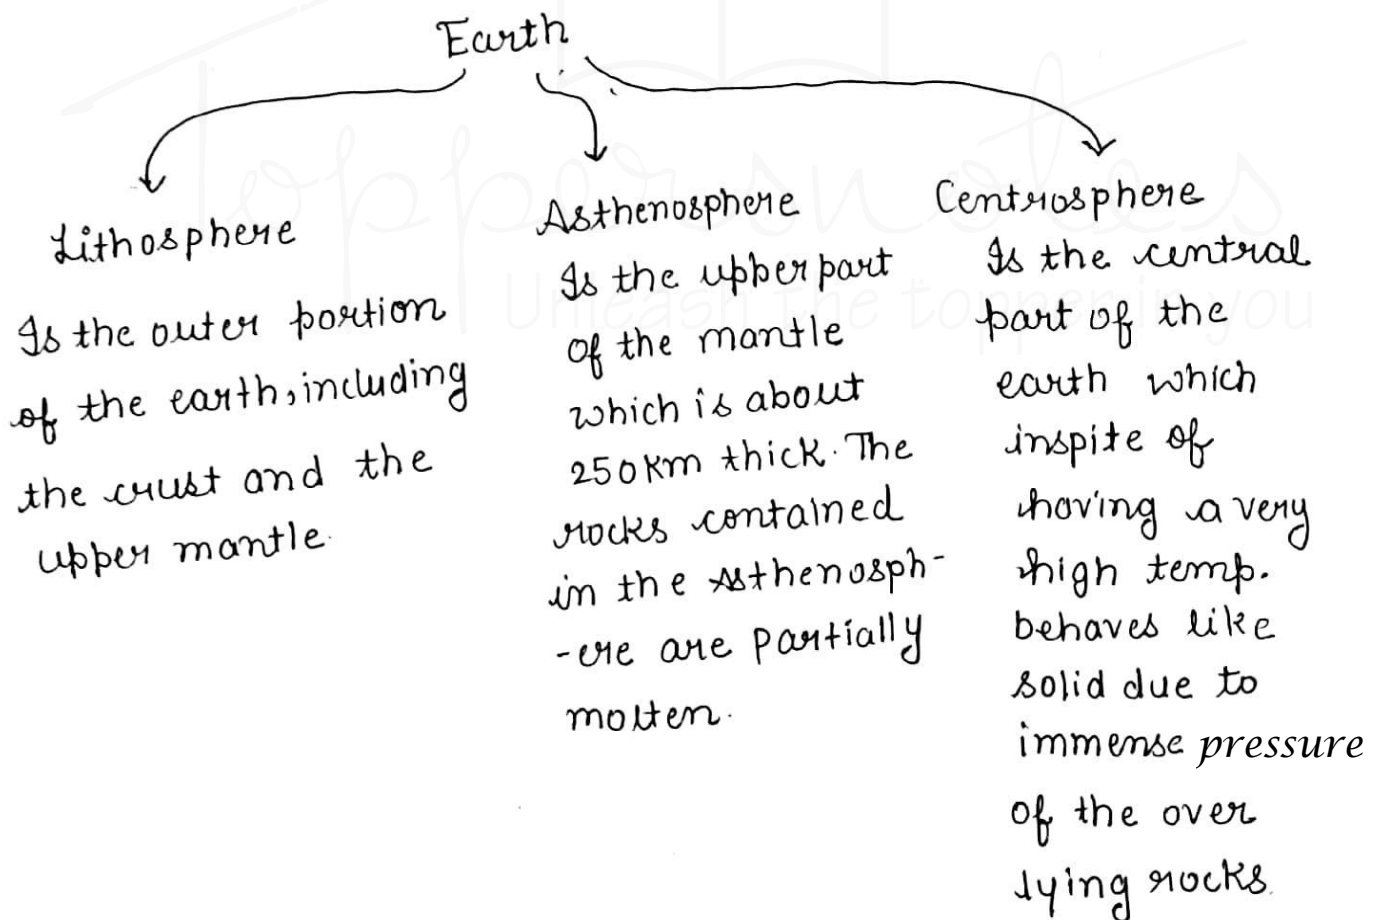 Earth
Lithosphere
Is the outer portion
of the earth, including
the crust and the
upper mantle.
Asthenosphere
Is the upper part
of the mantle
which is about
250km thick. The
rocks contained
in the Asthenosph-
-ere are partially
molten.
Centrosphere
Is the central
part of the
earth which
inspite of
having a very
high temp.
behaves like
solid due to
immense pressure
of the over
lying rocks.
Toppersnotes
Unleash the topper in you